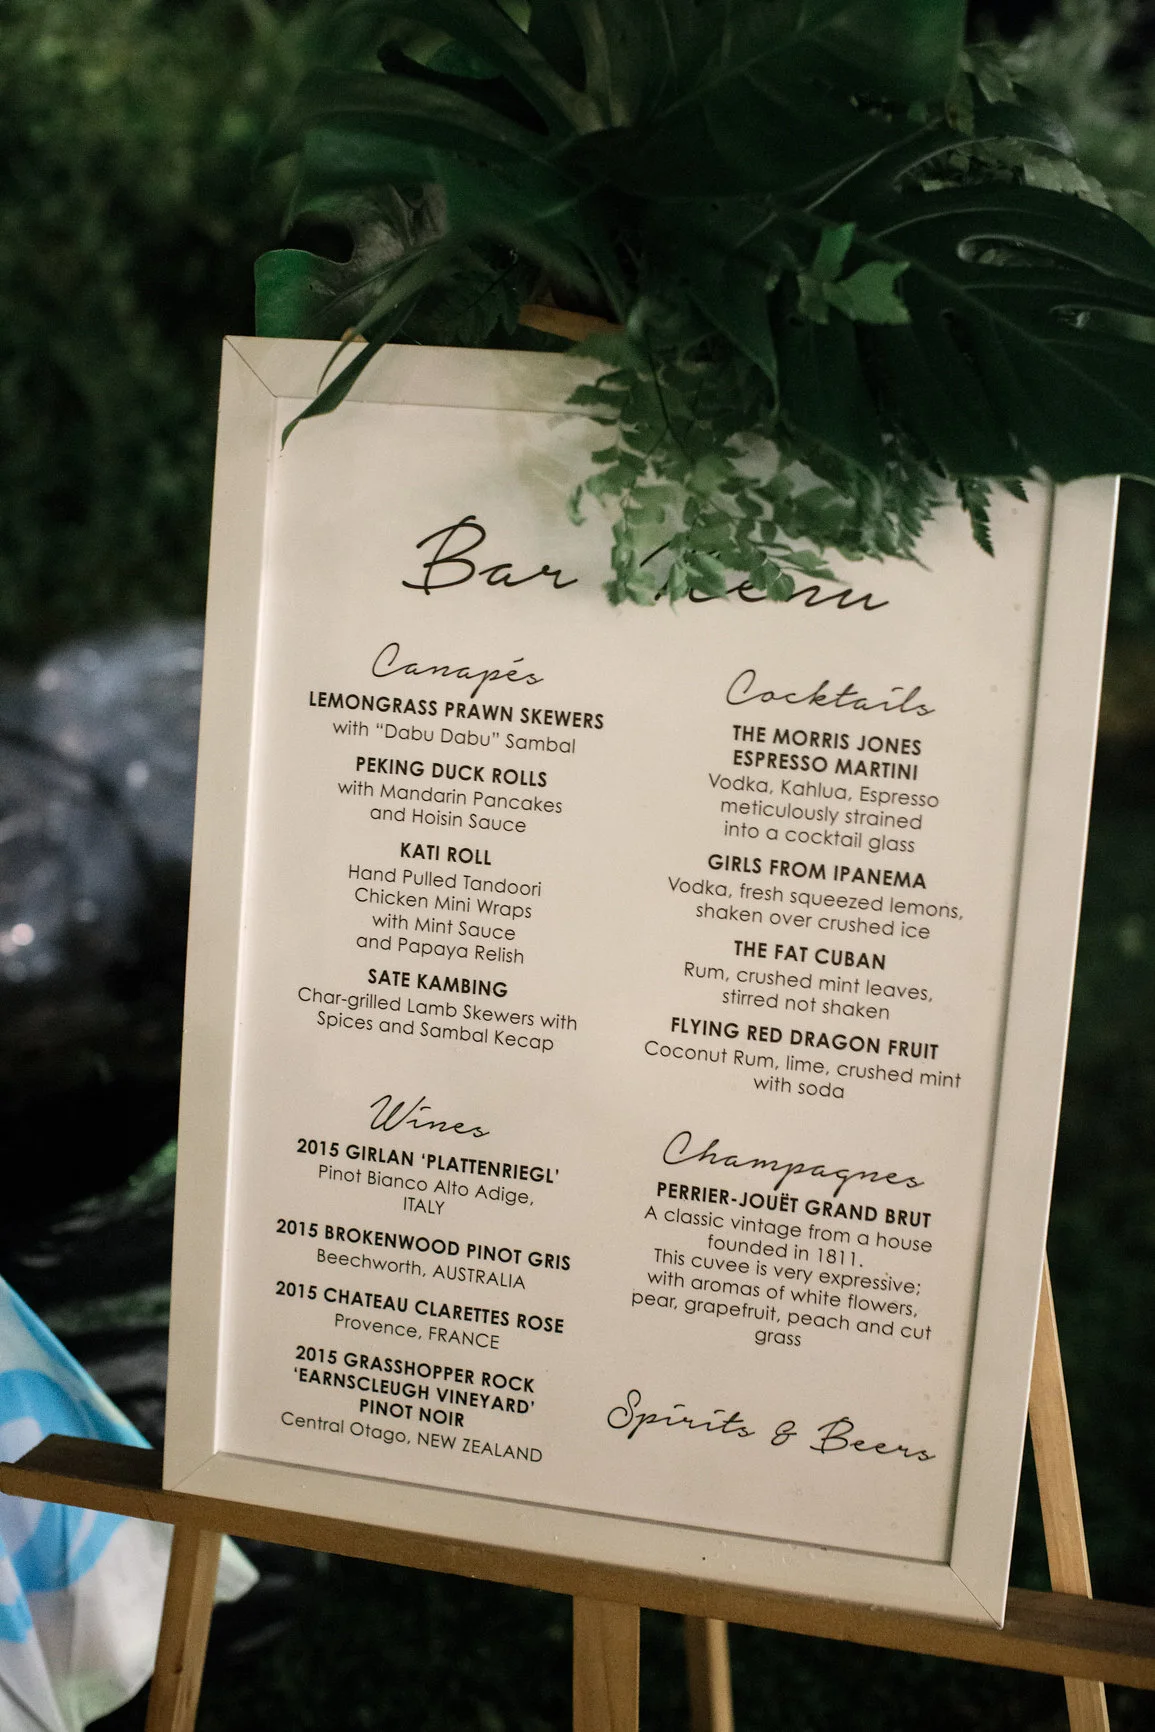 Bar Menu
Canapés
LEMONGRASS PRAWN SKEWERS
with “Dabu Dabu” Sambal
PEKING DUCK ROLLS
with Mandarin Pancakes
and Hoisin Sauce
KATI ROLL
Hand Pulled Tandoori
Chicken Mini Wraps
with Mint Sauce
and Papaya Relish
SATE KAMBING
Char-grilled Lamb Skewers with
Spices and Sambal Kecap
Wines
2015 GIRLAN ‘PLATTENRIEGL’
Pinot Bianco Alto Adige,
ITALY
2015 BROKENWOOD PINOT GRIS
Beechworth, AUSTRALIA
2015 CHATEAU CLARETTES ROSE
Provence, FRANCE
2015 GRASSHOPPER ROCK
‘EARNSCLEUGH VINEYARD’
PINOT NOIR
Central Otago, NEW ZEALAND
Cocktails
THE MORRIS JONES
ESPRESSO MARTINI
Vodka, Kahlua, Espresso
meticulously strained
into a cocktail glass
GIRLS FROM IPANEMA
Vodka, fresh squeezed lemons,
shaken over crushed ice
THE FAT CUBAN
Rum, crushed mint leaves,
stirred not shaken
FLYING RED DRAGON FRUIT
Coconut Rum, lime, crushed mint
with soda
Champagnes
PERRIER-JOUËT GRAND BRUT
A classic vintage from a house
founded in 1811.
This cuvee is very expressive;
with aromas of white flowers,
pear, grapefruit, peach and cut
grass
Spirits & Beers